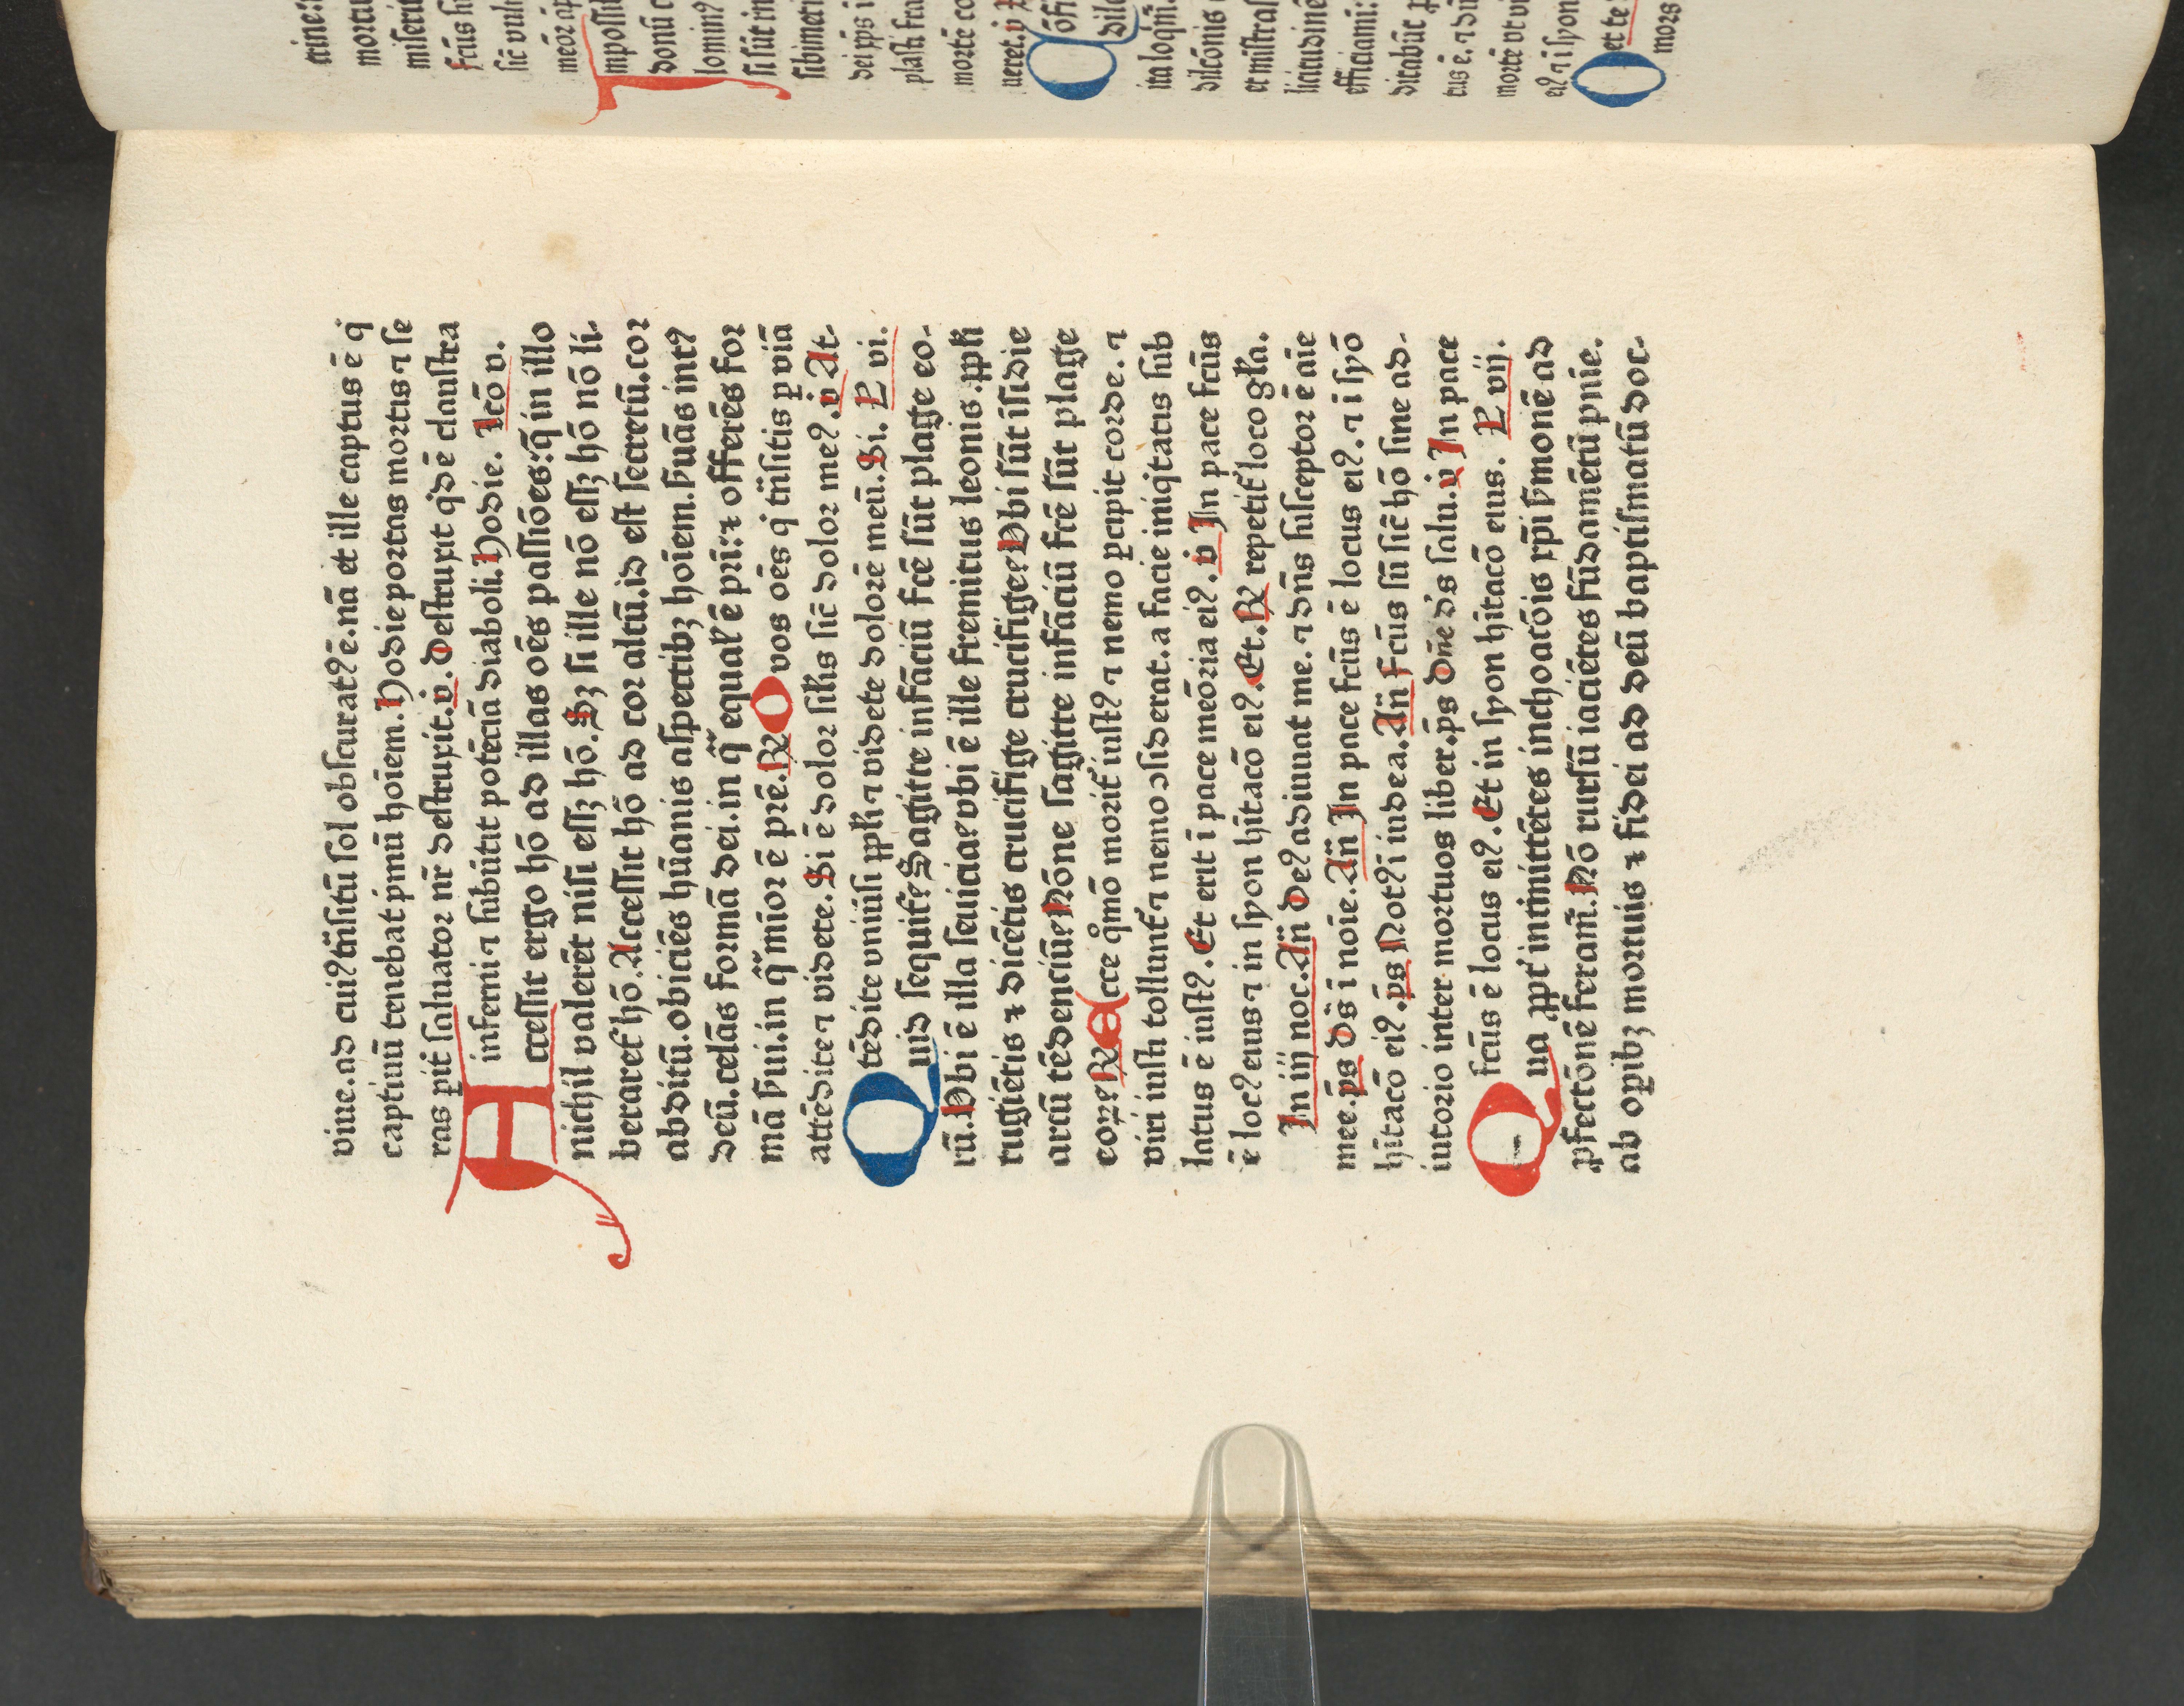 uine.ad cui⁹ trāsitū sol obscurat⁹ ē.nā et ille captus ē q̇
captiuū tenebat p̄mū hōiem.Hodie portas mortis ⁊ se
ras p̱it saluator nr̄ destruxit.v̇. Destruxit q̇dē claustra
inferni ⁊ subūtit potēciā diaboli.Hodie. Lcō v.
Accessit ergo hō ad illas oēs passiōes:q̄ in illo
nichil valerēt nisi essꝫ hō.Sꝫ si ille nō essꝫ hō nō li-
beraret᷑ hō.Accessit hō ad cor altū.id est secretū.cor
abditū.obiciēs hūanis aspectibꝫ hoīem.ẜuās int⁹
deū.celās formā dei.in q̄ equal' ē pr̄i:⁊ offerēs for
mā ẜui.in q̄ mīor ē pr̄e.R O vos oēs q̇ trāsitis ꝑ viā
attēdite ⁊ videte.Si ē dolor sił̓is sic̄ dolor me⁹.v̇ At-
tēdite vniūsi ppł̓i ⁊ videte dolorē meū.Si. L vi.
Quid seq̄uit᷑? Sagitte infāciū fc̄e sūt plage eo-
rū.Vbi ē illa seuicia? vbi ē ille fremitus leonis.ppł̓i
rugiētis ⁊ dicētis crucifige crucifige? Vbi sūt īsidie
arcū tēdenciū? Nōne sagitte infāciū fc̄e sūt plage
eoꝝ? R Ecce q̊mō morit᷑ iust⁹ ⁊ nemo ꝑcipit corde. ⁊
viri iusti tollunt᷑ ⁊ nemo ꝯsiderat.a facie iniq̇tatis sub
latus ē iust⁹.Et erit ī pace meōria ei⁹.v̇ In pace fc̄us
ē loc⁹ eius ⁊ in syon hītacō ei⁹.Et.R repetit᷑ loco gł̓a.
In iij noc.Añ De⁹ adiuuat me. ⁊ dn̄s susceptor ē aīe
mee.p̄s Ds̄ ī noīe.Añ In pace fc̄us ē locus ei⁹. ⁊ ī syō
hītacō ei⁹.p̄s Not⁹ ī iudea.Añ Fc̄us sū sic̄ hō sine ad-
iutorio inter mortuos liber.p̄s Dn̄e d's salu.v̇ In pace
fc̄us ē locus ei⁹.Et in syon hītacō eius. L vij.
Qua ꝓpt' intmittētes inchoacōis xp̄i ẜmonē ad
ꝑfectōnē feram̄.Nō rursū iaciētes fūdamētū pn̄ie.
ab oꝑibꝫ mortuis ⁊ fidei ad deū baptismatū doc-